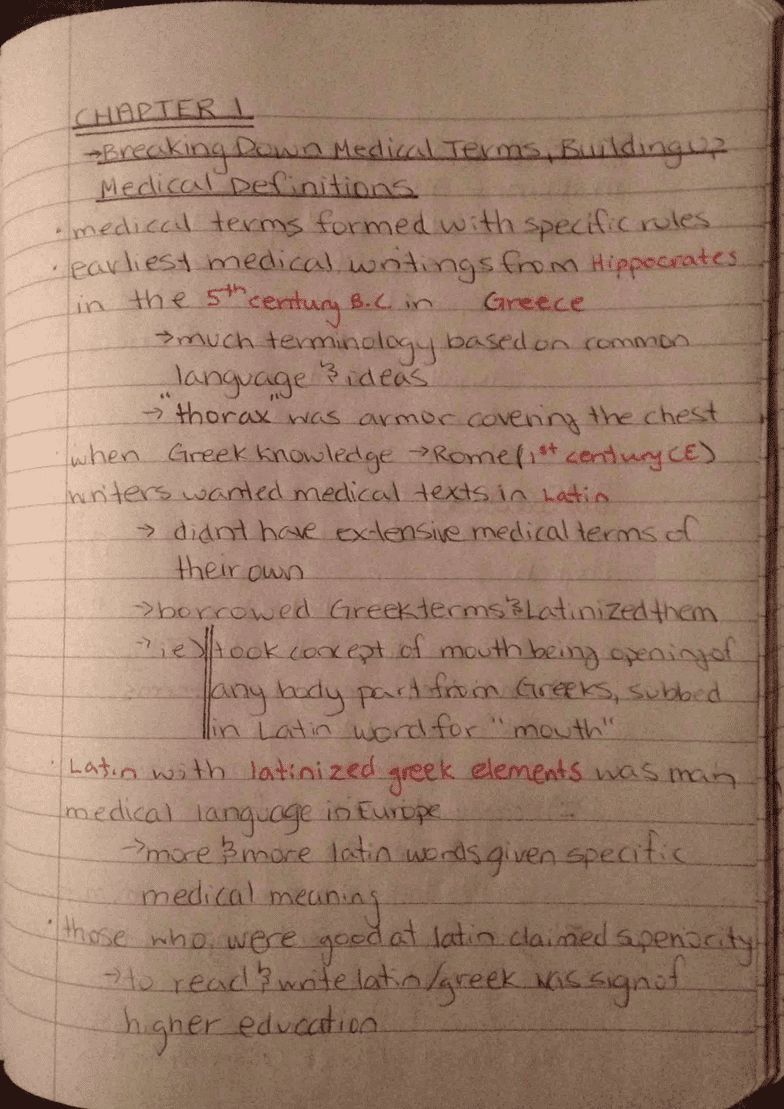 CHAPTER 1
→Breaking Down Medical Terms, Building Up
Medical Definitions
· medical terms formed with specific rules
· earliest medical writings from Hippocrates
in the 5th century B.C. in Greece
→much terminology based on common
language & ideas
→ "thorax" was armor covering the chest
· when Greek knowledge →Rome (1st century CE)
writers wanted medical texts in Latin
→ didnt have extensive medical terms of
their own
→borrowed Greek terms & Latinized them
→ie) took concept of mouth being opening of
any body part from Greeks, subbed
in Latin word for "mouth"
· Latin with latinized greek elements was main
medical language in Europe
→more & more latin words given specific
medical meaning
· those who were good at latin claimed
→to read & write latin/greek was sign of
higher education